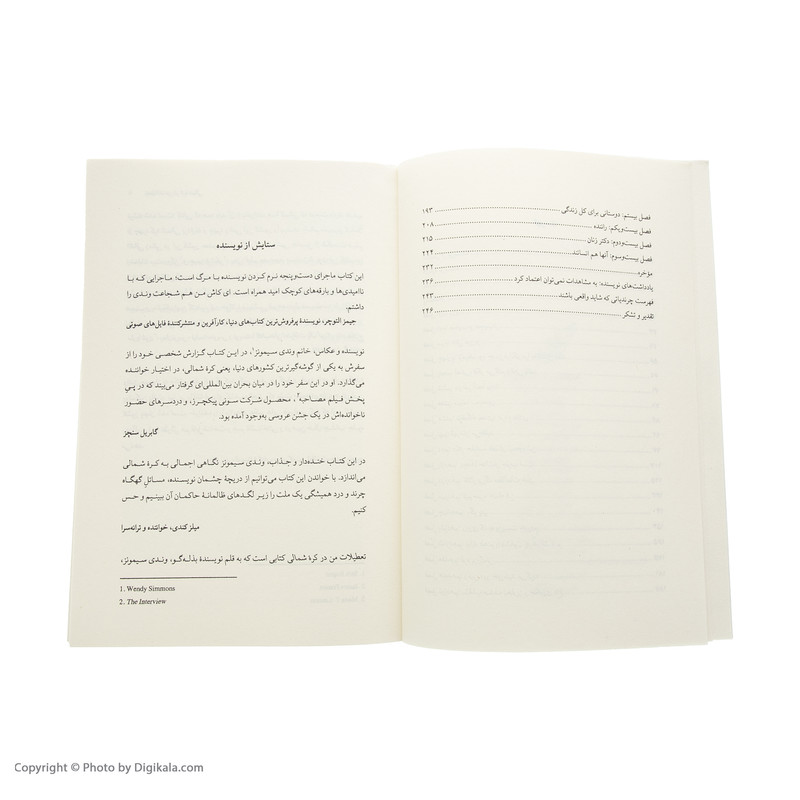 فصل بیستم: دوستانی برای کل زندگی ........ ۱۹۳
فصل بیست‌ویکم: راننده ........ ۲۰۸
فصل بیست‌ودوم: دکتر زنان ........ ۲۱۵
فصل بیست‌وسوم: آنها هم انسانند ........ ۲۲۴
مؤخره ........ ۲۳۲
یادداشت‌های نویسنده: به مشاهدات نمی‌توان اعتماد کرد ........ ۲۳۶
فهرست چرندیاتی که شاید واقعی باشند ........ ۲۴۳
تقدیر و تشکر ........ ۲۴۶
ستایش از نویسنده
این کتاب ماجرای دست‌وپنجه نرم کردن نویسنده با مرگ است؛ ماجرایی که با
ناامیدی‌ها و بارقه‌های کوچک امید همراه است. ای کاش من هم شجاعت وندی را
داشتم.
جیمز التوچر، نویسندهٔ پرفروش‌ترین کتاب‌های دنیا، کارآفرین و منتشرکنندهٔ فایل‌های صوتی
نویسنده و عکاس، خانم وندی سیمونز۱، در این کتاب گزارش شخصی خود را از
سفرش به یکی از گوشه‌گیرترین کشورهای دنیا، یعنی کرهٔ شمالی، در اختیار خواننده
می‌گذارد. او در این سفر خود را در میان بحران بین‌المللی‌ای گرفتار می‌بیند که در پیِ
پخش فیلم مصاحبه۲، محصول شرکت سونی پیکچرز، و دردسرهای حضور
ناخوانده‌اش در یک جشن عروسی به‌وجود آمده بود.
گابریل سنچز
در این کتاب خنده‌دار و جذاب، وندی سیمونز نگاهی اجمالی به کرهٔ شمالی
می‌اندازد. با خواندن این کتاب می‌توانیم از دریچهٔ چشمان نویسنده، مسائل گهگاه
چرند و درد همیشگی یک ملت را زیر لگدهای ظالمانهٔ حاکمان آن ببینیم و حس
کنیم.
میلز کندی، خواننده و ترانه‌سرا
تعطیلات من در کرهٔ شمالی کتابی است که به قلم نویسندهٔ بذله‌گو، وندی سیمونز،
1. Wendy Simmons
2. The Interview
Copyright © Photo by Digikala.com